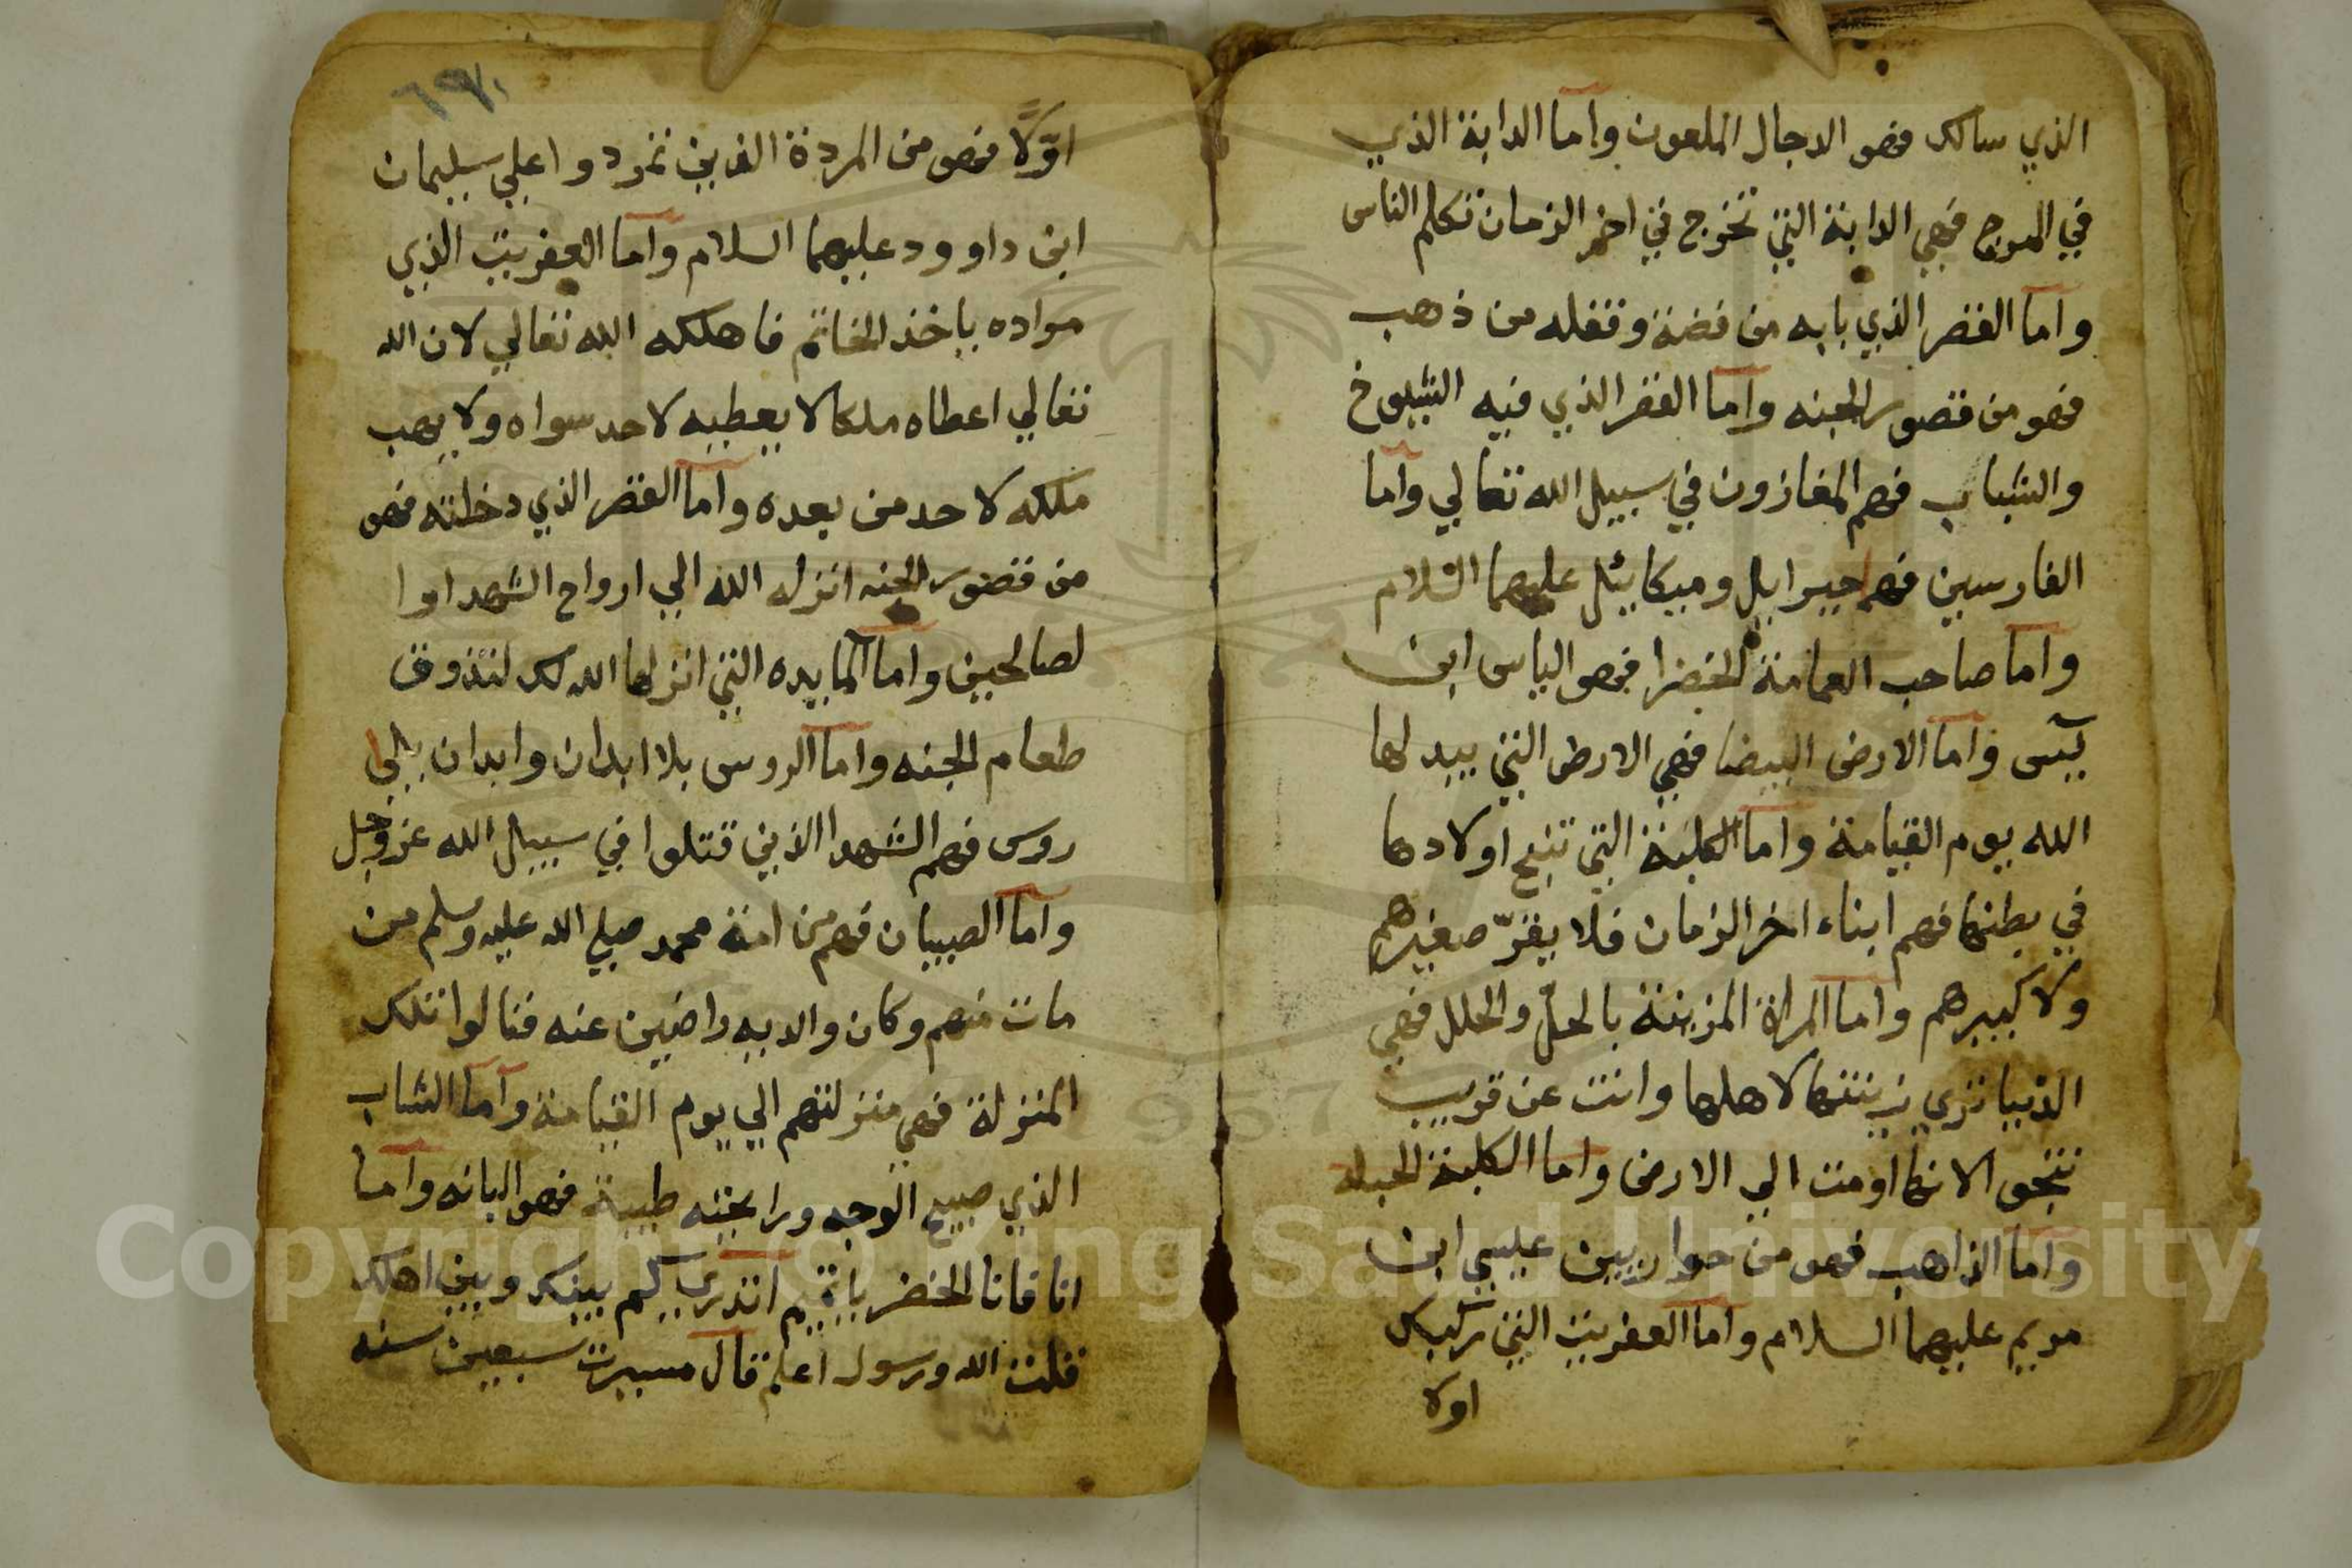 الذي سالك فهو الدجال الملعون واما الدابة الذي
في المرج فهي الدابة التي تخرج في اخر الزمان تكلم الناس
واما القصر الذي بابه من فضة وقفله من ذهب
فهو من قصور الجنه واما القصر الذي فيه الشيوخ
والشباب فهم المغازون في سبيل الله تعالي واما
الفارسين فهما جبرايل وميكاييل عليهما السلام
واما صاحب العمامة الخضرا فهو الياس ابن
يسى واما الارض البيضا فهي الارض التي يبدلها
الله يوم القيامة واما الكلبة التي تنبح اولادها
في بطنها فهم ابناء اخر الزمان فلا يقر صغيرهم
ولا كبيرهم واما المراة المزينة بالحلّ والحلل فهي
الدنيا تري زينتها لاهلها وانت عن قريب
تنجو الا انها اومت الي الارض واما الكلبة الحبله
واما الذاهب فهو من حواريين عيسي ابن
مريم عليهما السلام واما العفريت التي ركبك
اولا
٦٩
اوّلًا فهو من المردة الذين تمردوا علي سليمان
ابن داوود عليهما السلام واما العفريت الذي
مراده ياخذ الخاتم فاهلكه الله تعالي لان الله
تعالي اعطاه ملكا لا يعطيه لاحد سواه ولا يهب
ملكه لاحد من بعده واما القصر الذي دخلته فهو
من قصور الجنه انزله الله الي ارواح الشهدا وا
لصالحين واما المايده التي انزلها الله لك لتذوق
طعام الجنه واما الروس بلا ابدان وابدان بلا
روس فهم الشهدا الذين قتلوا في سبيل الله عز وجل
واما الصبيان فهم من امة محمد صلي الله عليه وسلم من
مات منهم وكان والديه راضيين عنه فنالوا تلك
المنزلة فهي منزلتهم الي يوم القيامة واما الشاب
الذي صبيح الوجه ورايحته طيبة فهو البانه واما
انا فانا الخضر يا تميم اتدري كم بينك وبين اهلك
قلت الله ورسوله اعلم قال مسيرت سبعين سنه
Copyright © King Saud University
1957